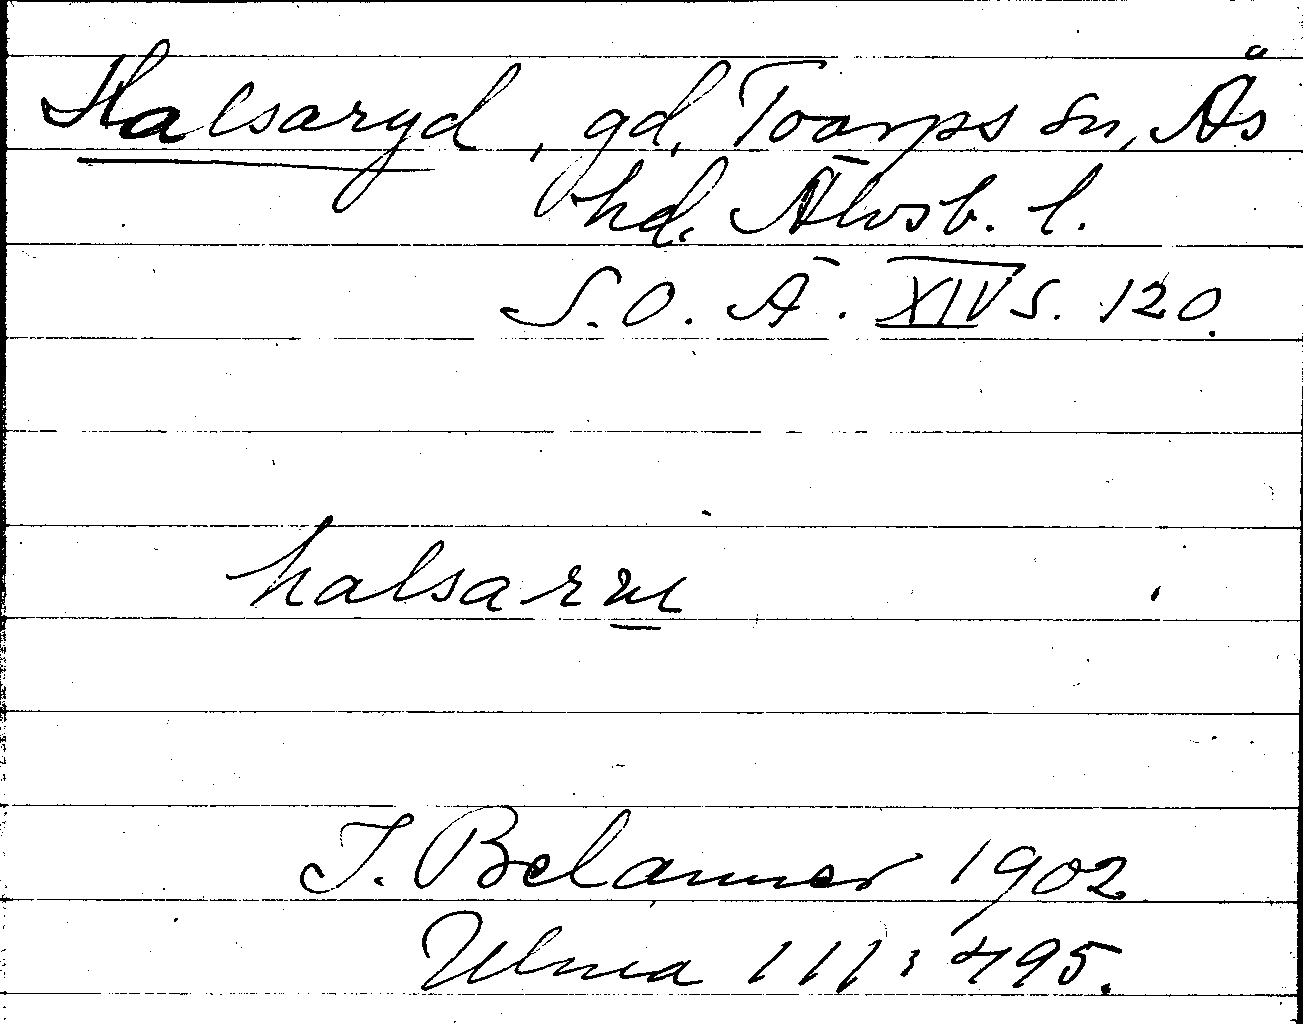 Halsaryd, gd, Toarps sn, Ås
hd. Älvsb. l.
S. O. Ä. XIV S. 120.
halsarui
J. Belanner 1902
Ulma 111:495.